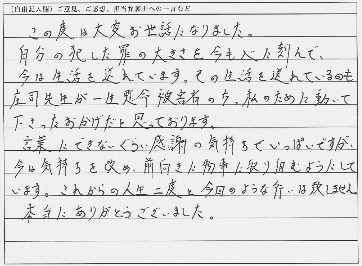 (自由記入欄) ご意見、ご感想、担当弁護士への一言など
この度は大変お世話になりました。
自分の犯した罪の大きさを今も心に刻んで、
今は生活を送れています。その生活を送れているのも
庄司先生が一生懸命被害者の方、私のために動いて
下さったおかげだと思っております。
言葉にできないぐらい感謝の気持ちでいっぱいですが、
今は気持ちを改め、前向きに物事に取り組むようにして
います。これからの人生二度と今回のような行いは致しません。
本当にありがとうございました。